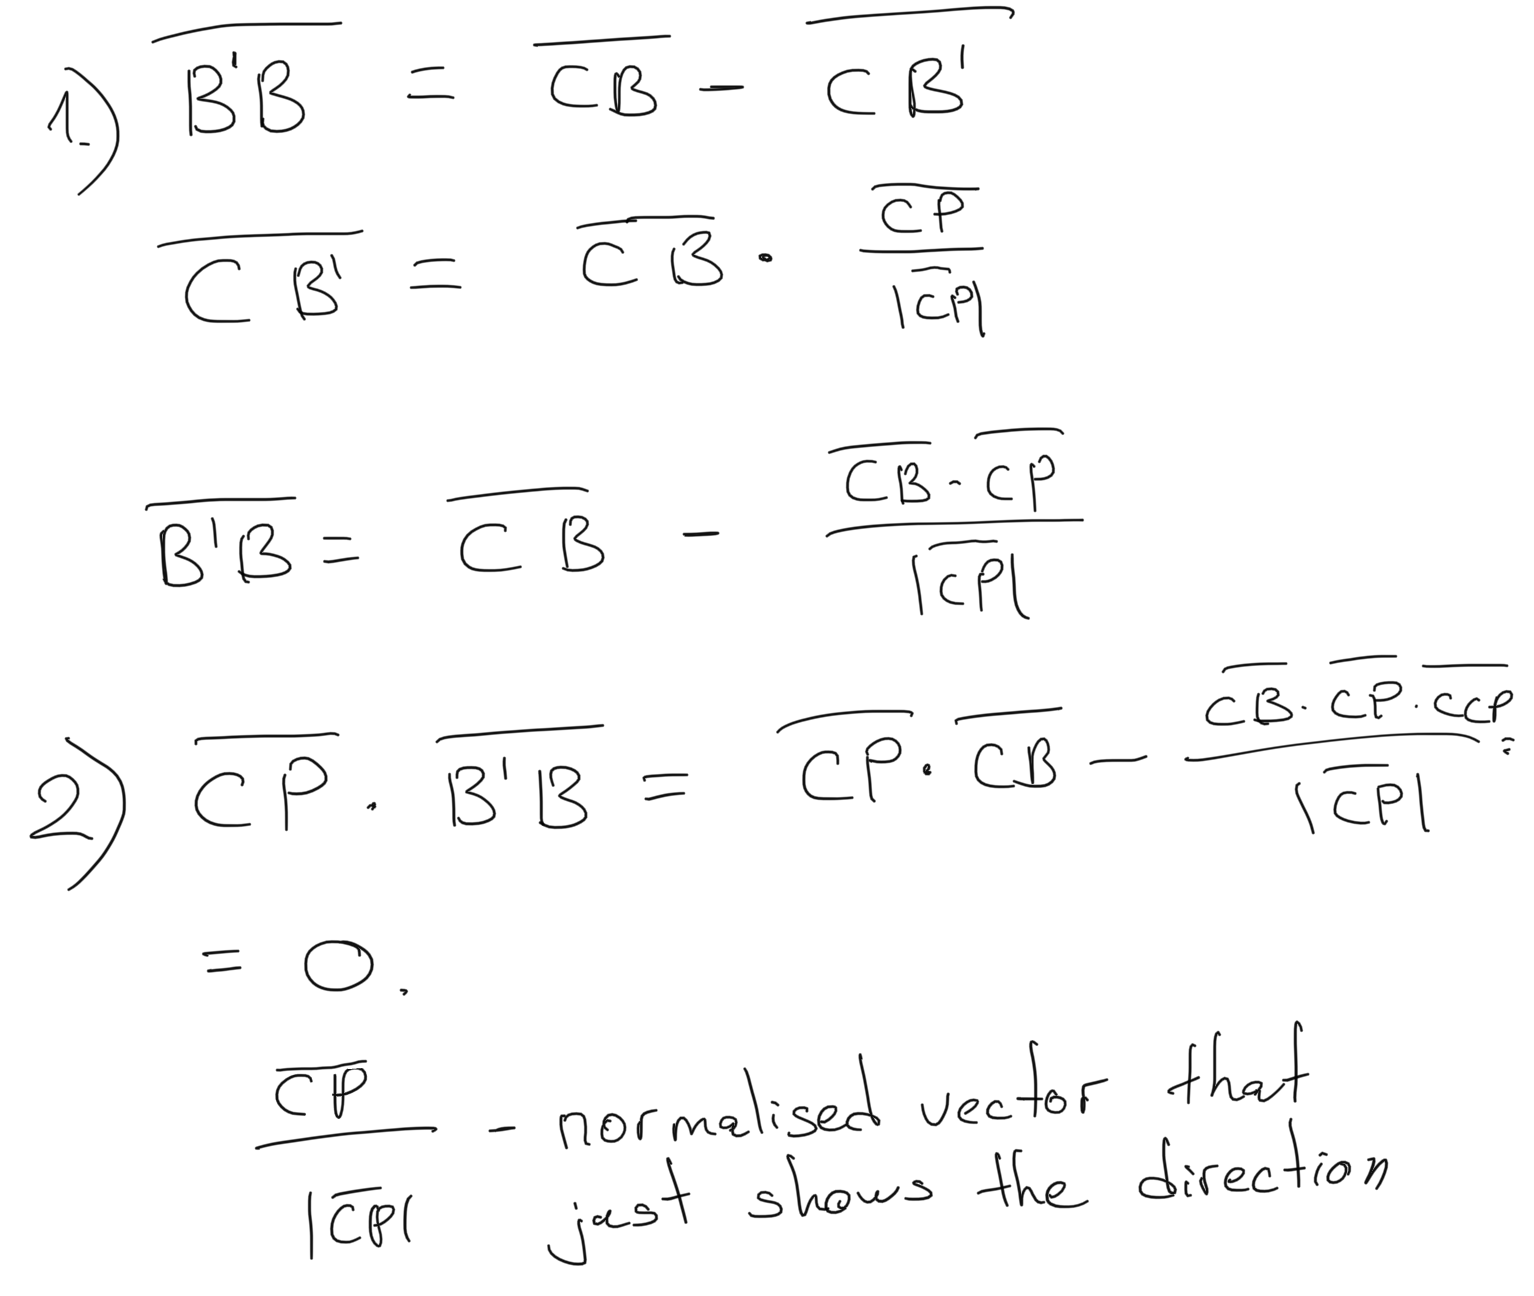 1.) $\overline{B'B} = \overline{CB} - \overline{CB'}$
$\overline{CB'} = \overline{CB} \cdot \frac{\overline{CP}}{|\overline{CP}|}$
$\overline{B'B} = \overline{CB} - \frac{\overline{CB} \cdot \overline{CP}}{|\overline{CP}|}$
2) $\overline{CP} \cdot \overline{B'B} = \overline{CP} \cdot \overline{CB} - \frac{\overline{CB} \cdot \overline{CP} \cdot \overline{CCP}}{|\overline{CP}|} =$
$= 0.$
$\frac{\overline{CP}}{|\overline{CP}|}$ - normalised vector that
just shows the direction